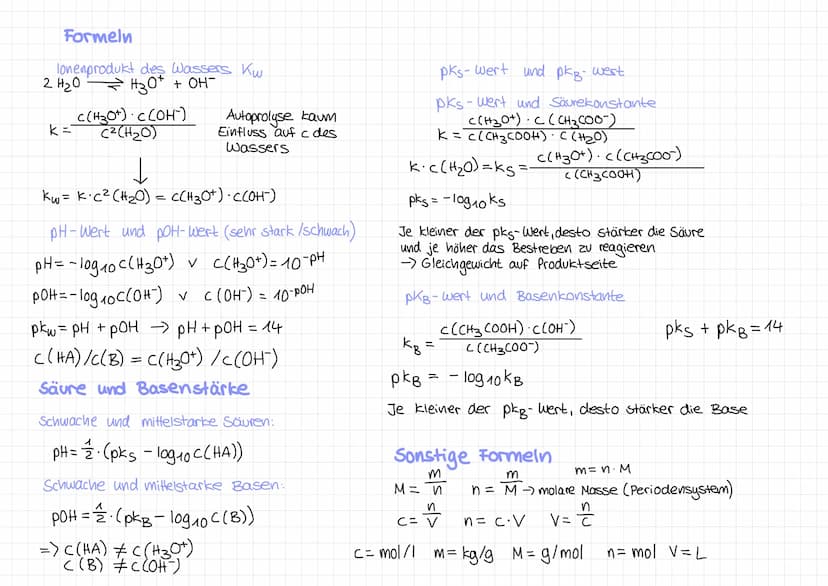 Formeln
Ionenprodukt des Wassers Kw
2 H₂O ⇌ H₃O⁺ + OH⁻
K = c(H₃O⁺) · c(OH⁻) / c²(H₂O)
Autoprolyse kaum
Einfluss auf c des
Wassers
↓
Kw = K · c²(H₂O) = c(H₃O⁺) · c(OH⁻)
pH-Wert und pOH-Wert (sehr stark/schwach)
pH = -log₁₀ c(H₃O⁺) v c(H₃O⁺) = 10^-pH
pOH = -log₁₀ c(OH⁻) v c(OH⁻) = 10^-pOH
pKw = pH + pOH → pH + pOH = 14
c(HA)/c(B) = c(H₃O⁺)/c(OH⁻)
Säure und Basenstärke
Schwache und mittelstarke Säuren:
pH = 1/2 · (pKs - log₁₀ c(HA))
Schwache und mittelstarke Basen:
pOH = 1/2 · (pKB - log₁₀ c(B))
=> c(HA) ≠ c(H₃O⁺)
c(B) ≠ c(OH⁻)
pKs-Wert und pKB-Wert
pKs-Wert und Säurekonstante
K = c(H₃O⁺) · c(CH₃COO⁻) / c(CH₃COOH) · c(H₂O)
K · c(H₂O) = Ks = c(H₃O⁺) · c(CH₃COO⁻) / c(CH₃COOH)
pKs = -log₁₀ Ks
Je kleiner der pKs-Wert, desto stärker die Säure
und je höher das Bestreben zu reagieren
→ Gleichgewicht auf Produktseite
pKB-Wert und Basenkonstante
KB = c(CH₃COOH) · c(OH⁻) / c(CH₃COO⁻)
pKs + pKB = 14
pKB = -log₁₀ KB
Je kleiner der pKB-Wert, desto stärker die Base
Sonstige Formeln
M = m/n n = m/M → molare Masse (Periodensystem) m = n · M
c = n/V n = c · V V = n/c
c = mol/l m = kg/g M = g/mol n = mol V = L